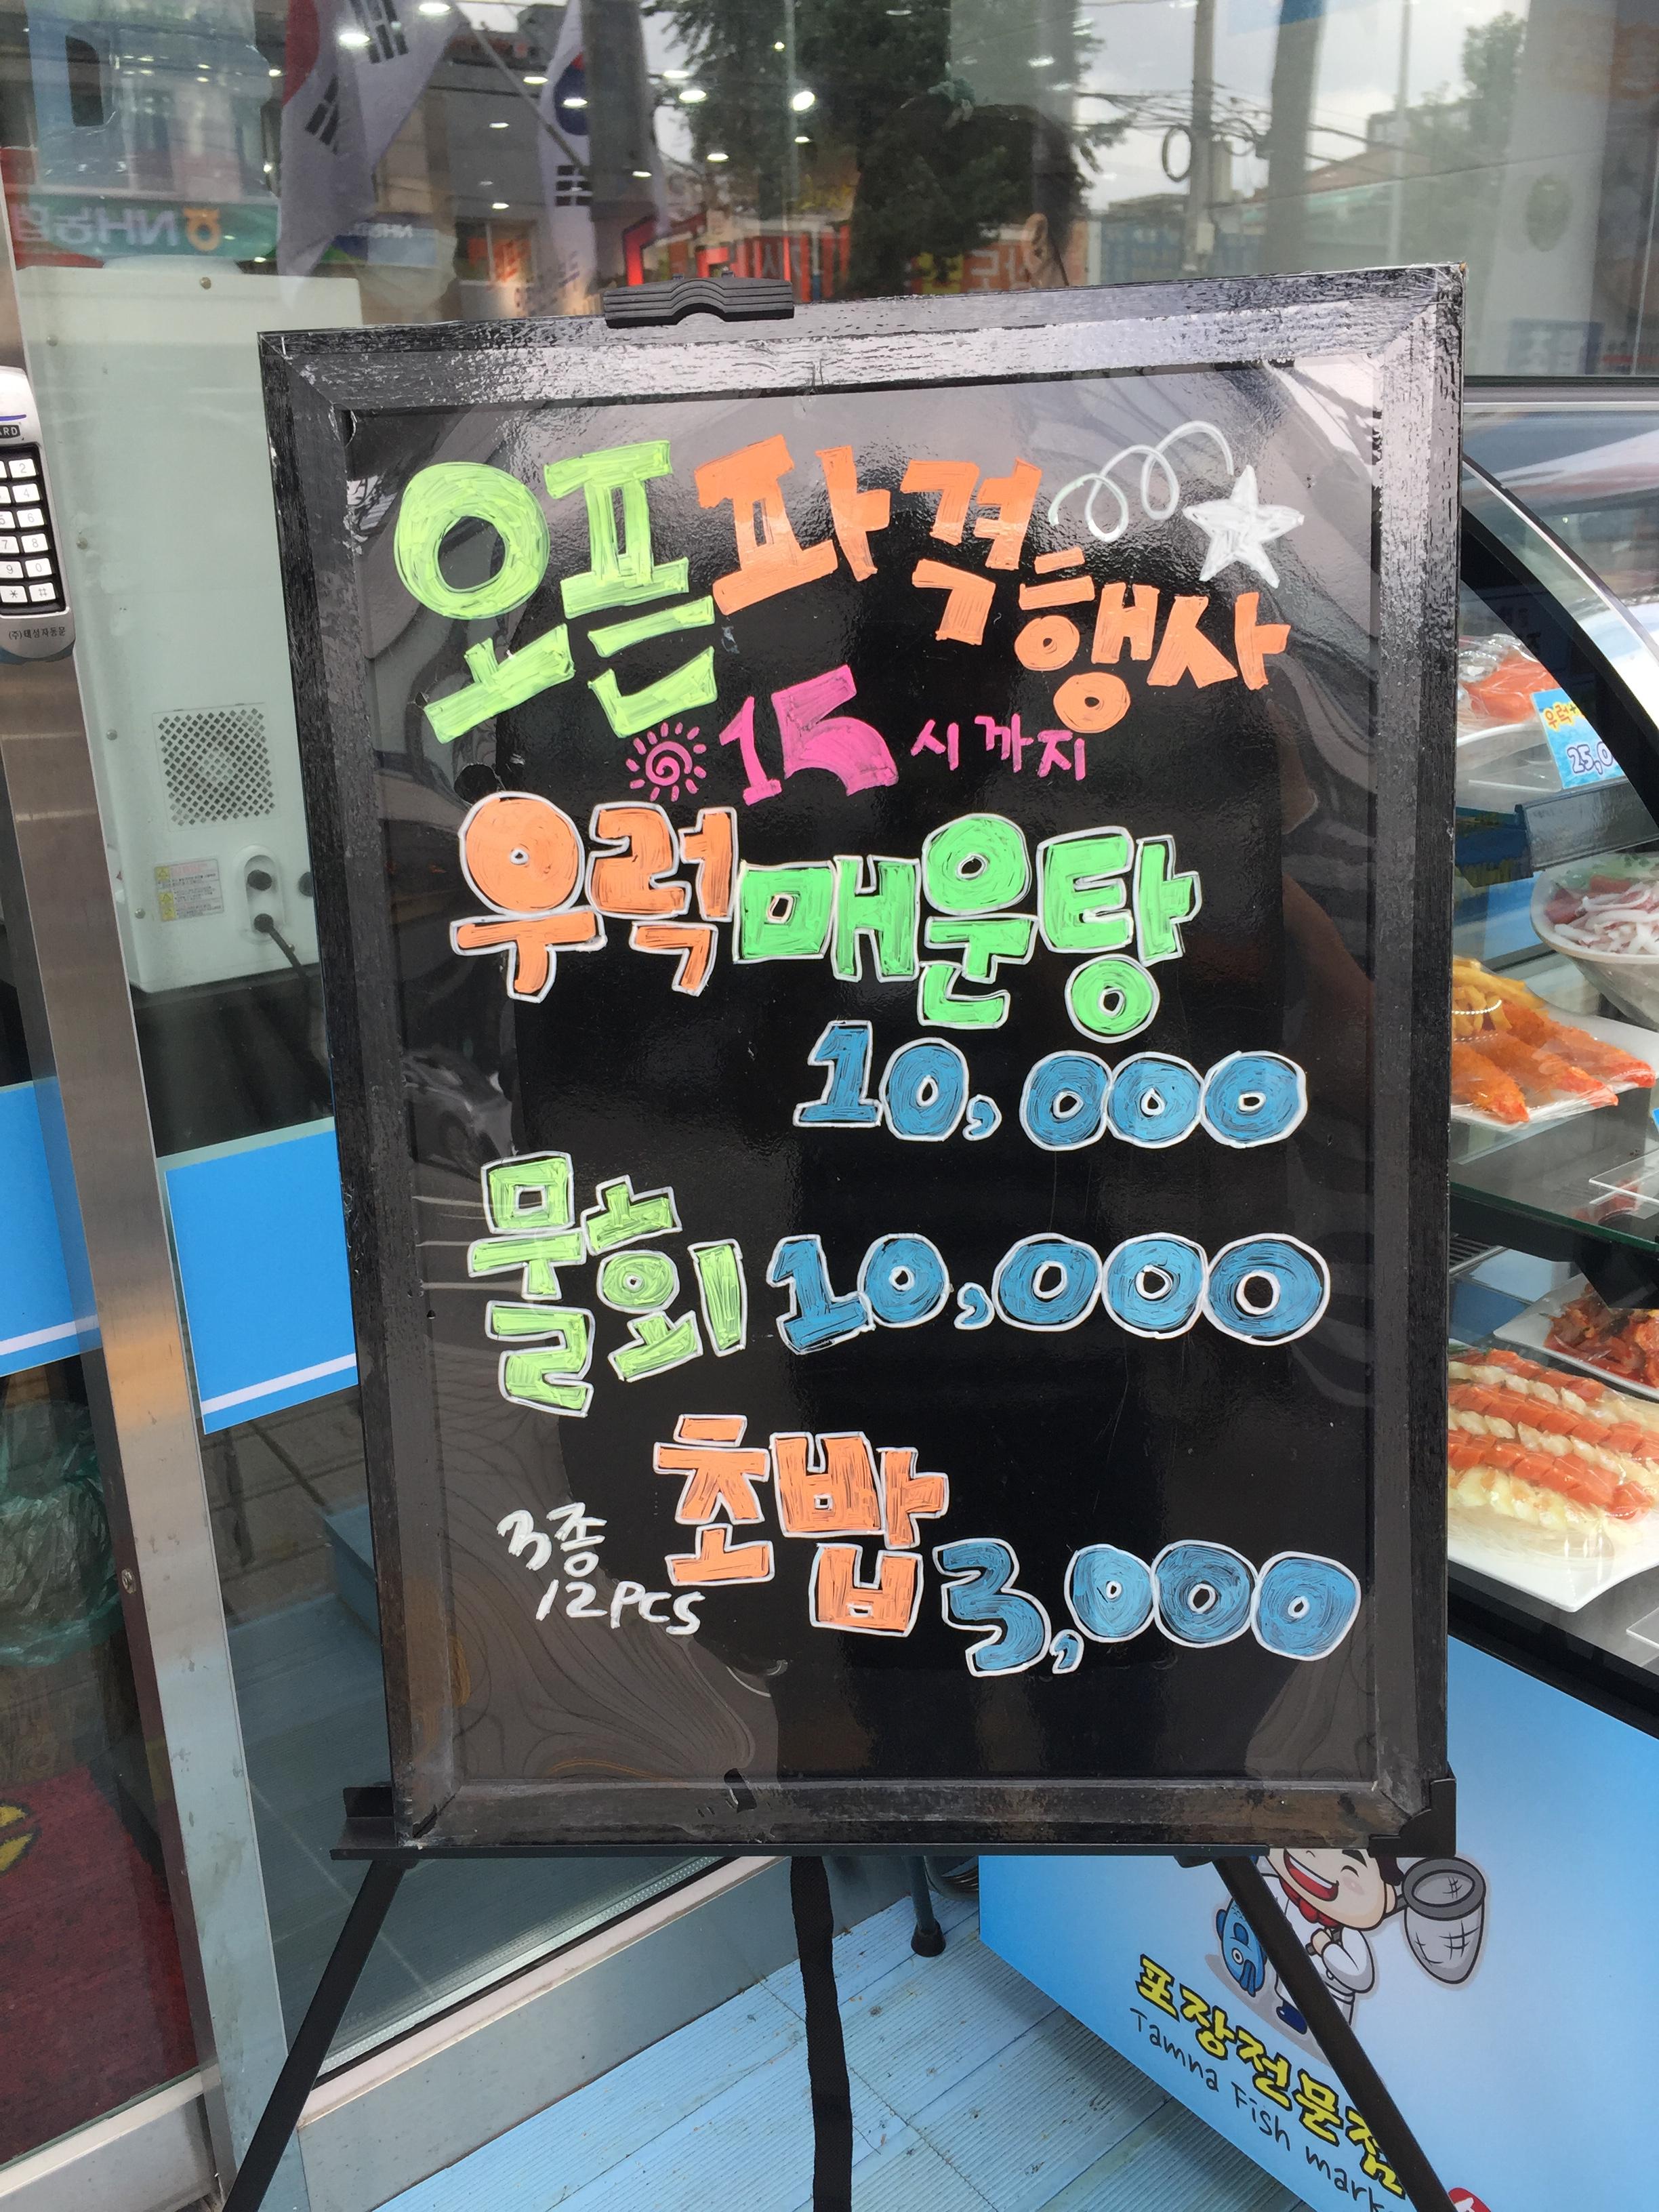 오픈 파격행사
15시까지
우럭매운탕
10,000
물회 10,000
초밥 3,000
3종
12PCS
포장전문점
Tamna Fish mark
우럭+
25,0
NH농협
(주)태성자동문